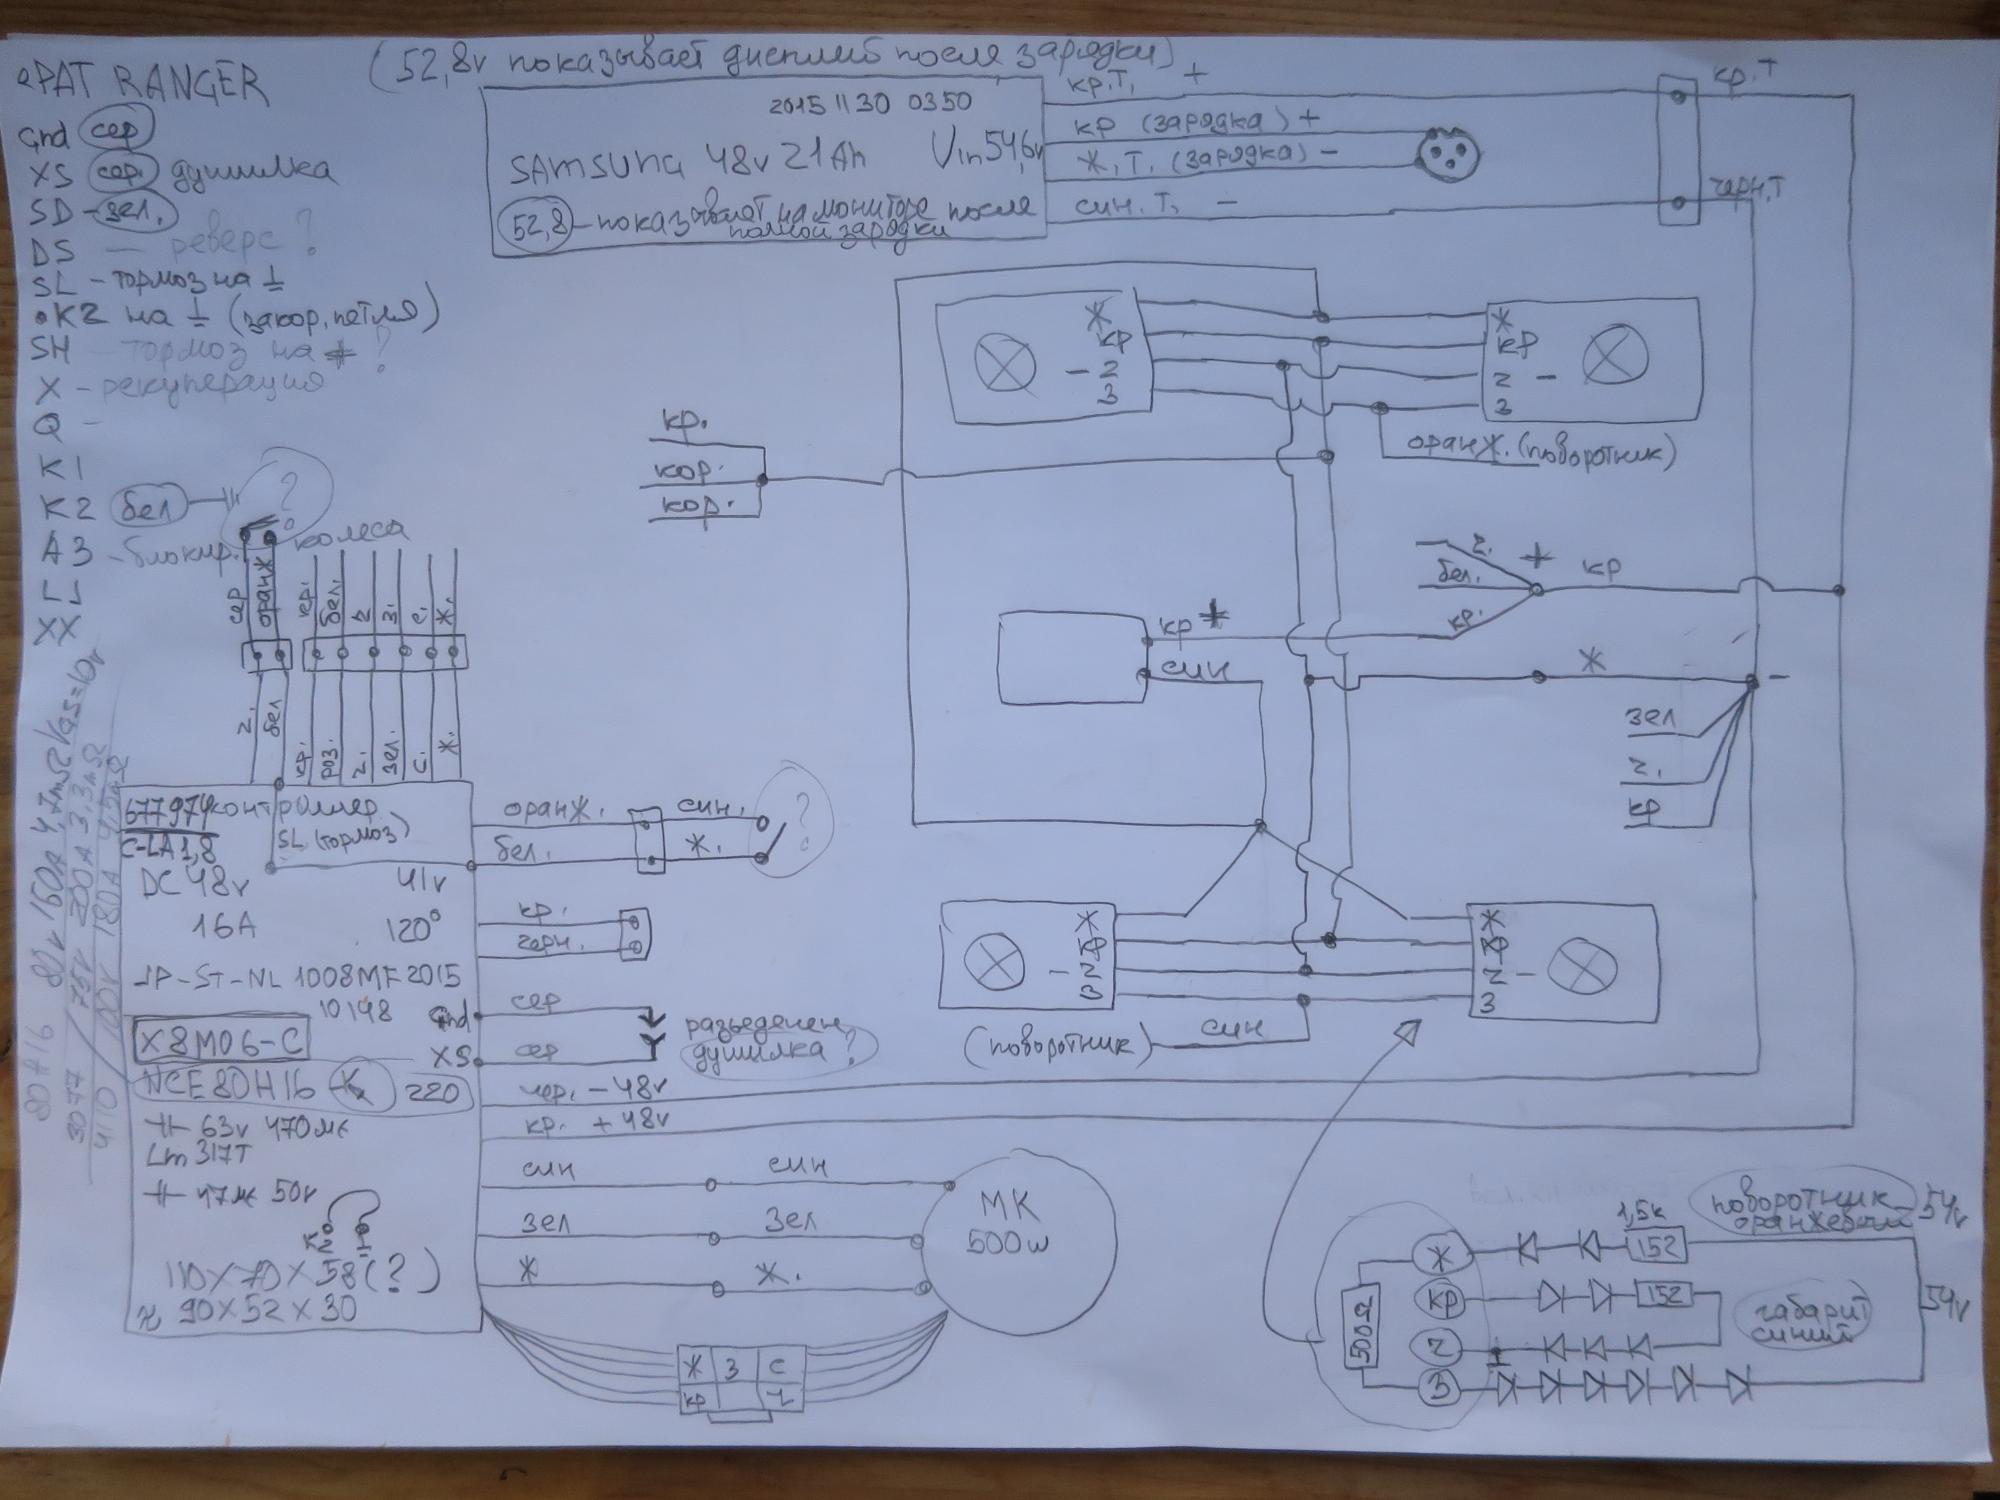 (52,8v показывает дисплей после зарядки)
ePAT RANGER
Gnd сер
XS сер. душилка
SD - зел.
DS - реверс?
SL - тормоз на ⊥
•K2 на ⊥ (закор. петля)
SH тормоз на + ?
X - рекуперация
Q -
K1
K2 бел
A3 - блокир. колеса
LL
XX
?
2015 11 30 0350
SAMSUNG 48v 21Ah Vin 54,6v
52,8 - показывает на мониторе после
полной зарядки
кр. Т, +
кр (зарядка) +
Ж, Т, (зарядка) -
син. Т, -
кр. Т
черн. Т
Ж
кр
- 2
3
Ж
кр
2 -
3
оранж. (поворотник)
кр.
кор.
кор.
ч.
бел.
кр.
+
кр
кр +
син
Ж
-
зел
ч.
кр
сер
оранж
кр.
бел.
ч
з.
с.
Ж.
ч.
бел
кр.
роз.
ч.
зел.
с.
Ж.
80H16 80v 160A 4,7mΩ Vgs=10v
3077 / 75v 200A 3,3mΩ
4110 / 100v 180A 4,5mΩ
677974 контроллер
C-LA1,8 SL (тормоз)
DC 48v 41v
16A 120°
JP-ST-NL 1008MF2015
10198
X8M06-C
Gnd
XS
NCE80H16 220
63v 470мк
Lm317T
47мк 50v
K2
110x70x58(?)
≈ 90x52x30
оранж. син.
бел. Ж.
?
кр.
черн.
сер
сер
разъеденен
душилка?
чер. - 48v
кр. + 48v
син син
зел зел
Ж Ж.
МК
500w
Ж З С
кр ч
Ж
кр
- 2
3
(поворотник) син
Ж
кр
2 -
3
поворотник
оранжевый
54v
1,5к
152
152
габарит
синий
54v
500Ω
Ж
кр
ч
З